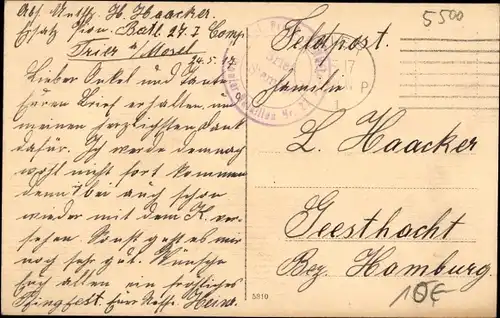 Abs. H. Haacker.
Ersatz Pion. Batl. 27. I Comp
Trier a/Mosel
24.5.17
Lieber Onkel und Tante
Euren Brief erhalten,
meinen herzlichsten Dank
dafür. Ich werde demnach
wohl nicht fort kommen
denn bei auch schon
wieder mit dem K. ver-
sehen. Sonst geht es mir
noch sehr gut. Wünsche
Euch allen ein fröhliches
Pfingfest. Euer Neffe. Heinr.
Feldpost.
Familie
L. Haacker
Geesthacht
Bez. Hamburg
5500
10€
5910